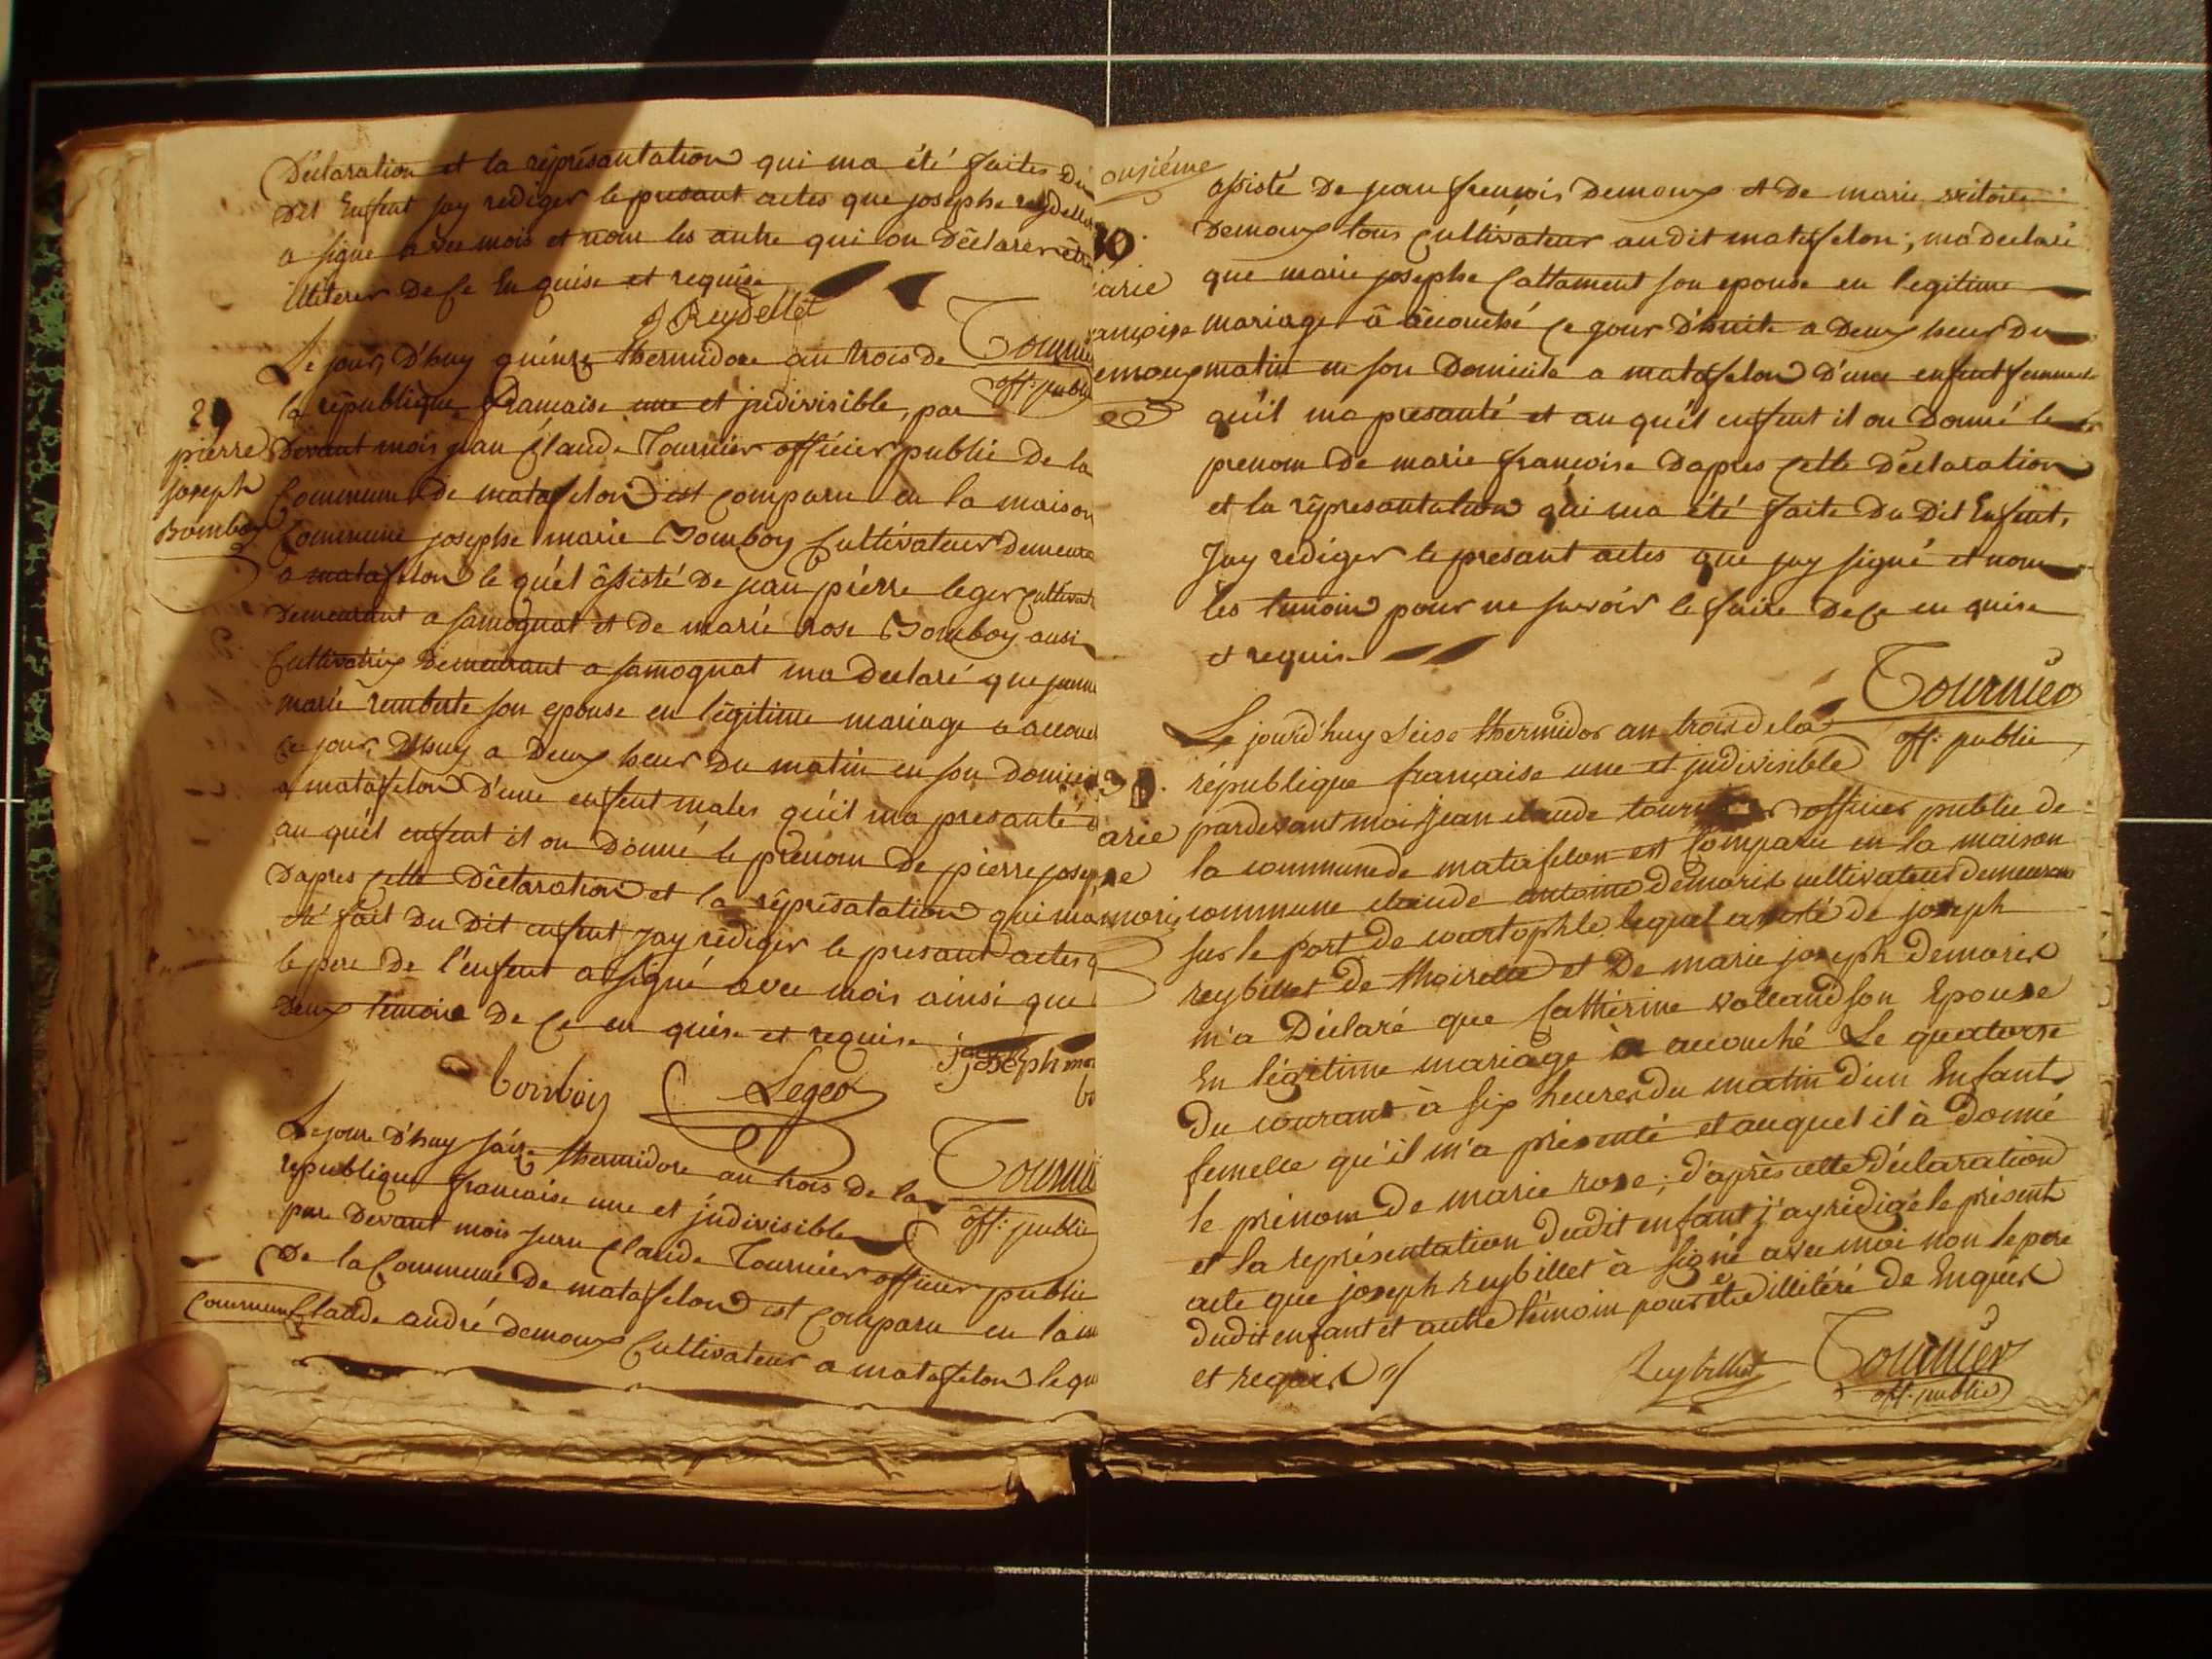 Déclaration et la réprésantation qui ma été faites du
dit Enfent jay rediger le presant actes que josephe reydellet
a signe avec mois et nom les autre qui on déclarer être
illiterer de ce En quise et requise
J Reydellet
Tournier
off: public
Le jour, d'huy quinze thermidore an trois de
la république francaise une et jndivisible, par
29
pierre
joseph
Bomboy
devant mois jean Claude Tournier officier public de la
Commune de matafelon est comparu en la maison
Commune josephe marie Bomboy Cultivateur demeura
a matafelon le quél âssisté de jean piérre leger cultivat
demeurant a samognat et de marie rose Bomboy ausi
Cultivatrix demeurant a samognat ma declaré que jeanne
marie remberte son epouse en légitime mariage a accouc
ce jour, d'huy a deux heur du matin en son domici
a matafelon d'une enfent males qu'il ma presante
au quél enfent il on donné le prénom de pierre josep
dapres cette déclaration et la réprésatation qui ma
été fait du dit enfent jay rédiger le presant actes q
le pere de l'enfent a signé avec mois ainsi que
deux temoins de ce en quise et requise
joseph ma
bonboy Leger bo
Tournie
off: public
Le jour d'huy saize thermidore an trois de la
republique francaise une et jndivisible
par devant mois jean Claude Tournier officier public
De la Commune de matafelon est comparu en la m
Commune Claude andré demoux Cultivateur a matafelon le qu
onsiéme
30.
arie
ançoise
emoux
assisté de jean francois demoux et de marie
demoux tous Cultivateur au dit matafelon; ma declaré
que marie josephe Cattament son epouse en legitime
mariage â âcouché ce jour d'huite a deux heur du
matin en son domicile a matafelon d'une enfent femmelle
qu'il ma presanté et au quél enfent il on donné le
prenom de marie françoise dapres cette déclaration
et la répresantation qui ma été faite du dit Enfent,
Jay rediger le presant actes que jay signé et nom
les temoins pour ne savoir le faire de ce en quise
et requise
Tournier
off: public
Le jourd'huy seise thermidor an trois de la
république française une et jndivisible
31.
arie
se
moris
pardevant moi jean claude tournier officier public de
la commune de matafelon est Comparu en la maison
commune claude antoine demoris cultivateur demeurant
sur le port de courtophle lequel assisté de joseph
reybillet de thoirette et de marie joseph demoris
m'a Déclaré que Cathérine vollaud son Epouse
En légitime mariage à accouché Le quatorse
du courant à six heures du matin d'un Enfant
femelle qu'il m'a présenté et auquel il à donné
le prénom de marie rose; d'après cette déclaration
et la représentation dudit enfant j'ay rédigé le présent
acte que joseph reybillet à signé avec moi non le pere
dudit enfant et autre témoin pour être illitéré de Enquis
et requis
Reybillet Tournier
off: public